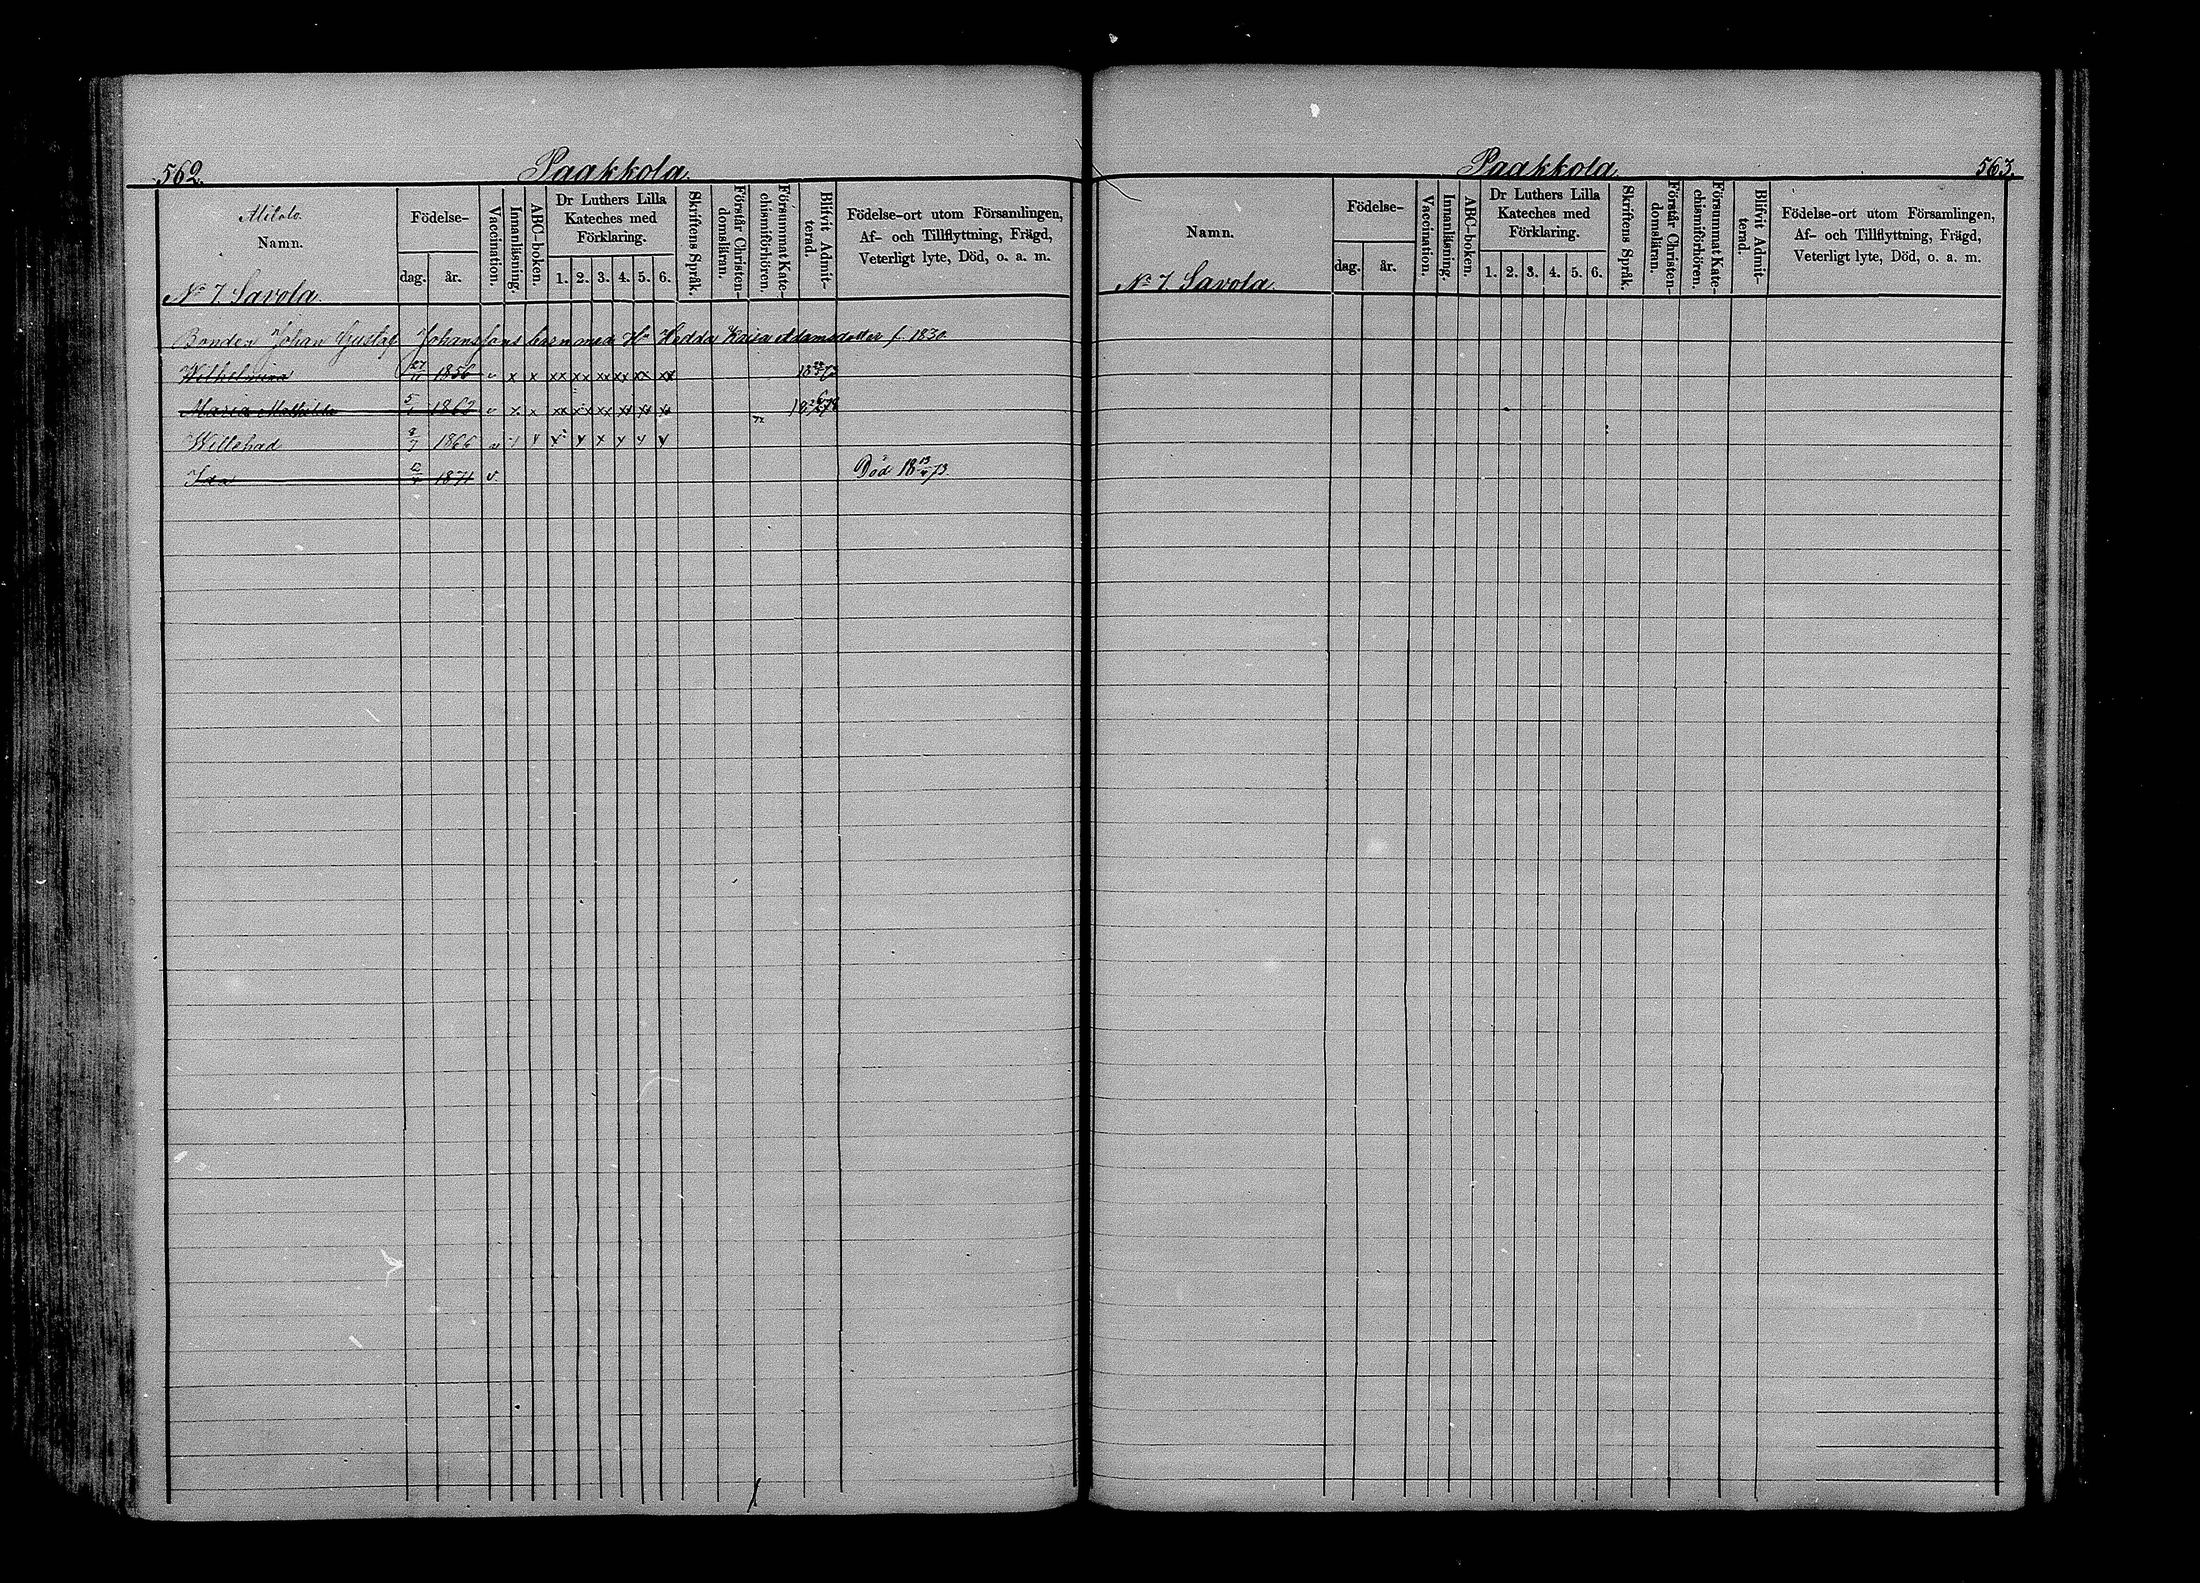 562.
Paakkola.
Namn.
Födelse-
dag.
år.
Vaccination.
Innanläsning.
ABC-boken.
Dr Luthers Lilla
Kateches med
Förklaring.
1. 2. 3. 4. 5. 6.
Skriftens Språk.
Förstår Christen-
domsläran.
Försummat Kate-
chismiförhören.
Blifvit Admit-
terad.
Födelse-ort utom Församlingen,
Af- och Tillflyttning, Frägd,
Veterligt lyte, Död, o. a. m.
No 7. Savola.
Bonden Johan Gustaf Johanssons barn med Hu Hedda Kaisa Adamsdotter f. 1830
Wilhelmina 27/11 1856 v x x xx xx xx xx xx xx
Maria Mathilda 5/1 1862 v x x xx xx xx xx xx xx
Willehad 1866 v x x x x x x x
Ida 1871 v Död 18 13/4 73.
Paakkola
563.
Namn.
Födelse-
dag.
år.
Vaccination.
Innanläsning.
ABC-boken.
Dr Luthers Lilla
Kateches med
Förklaring.
1. 2. 3. 4. 5. 6.
Skriftens Språk.
Förstår Christen-
domsläran.
Försummat Kate-
chismiförhören.
Blifvit Admit-
terad.
Födelse-ort utom Församlingen,
Af- och Tillflyttning, Frägd,
Veterligt lyte, Död, o. a. m.
No 7. Savola.